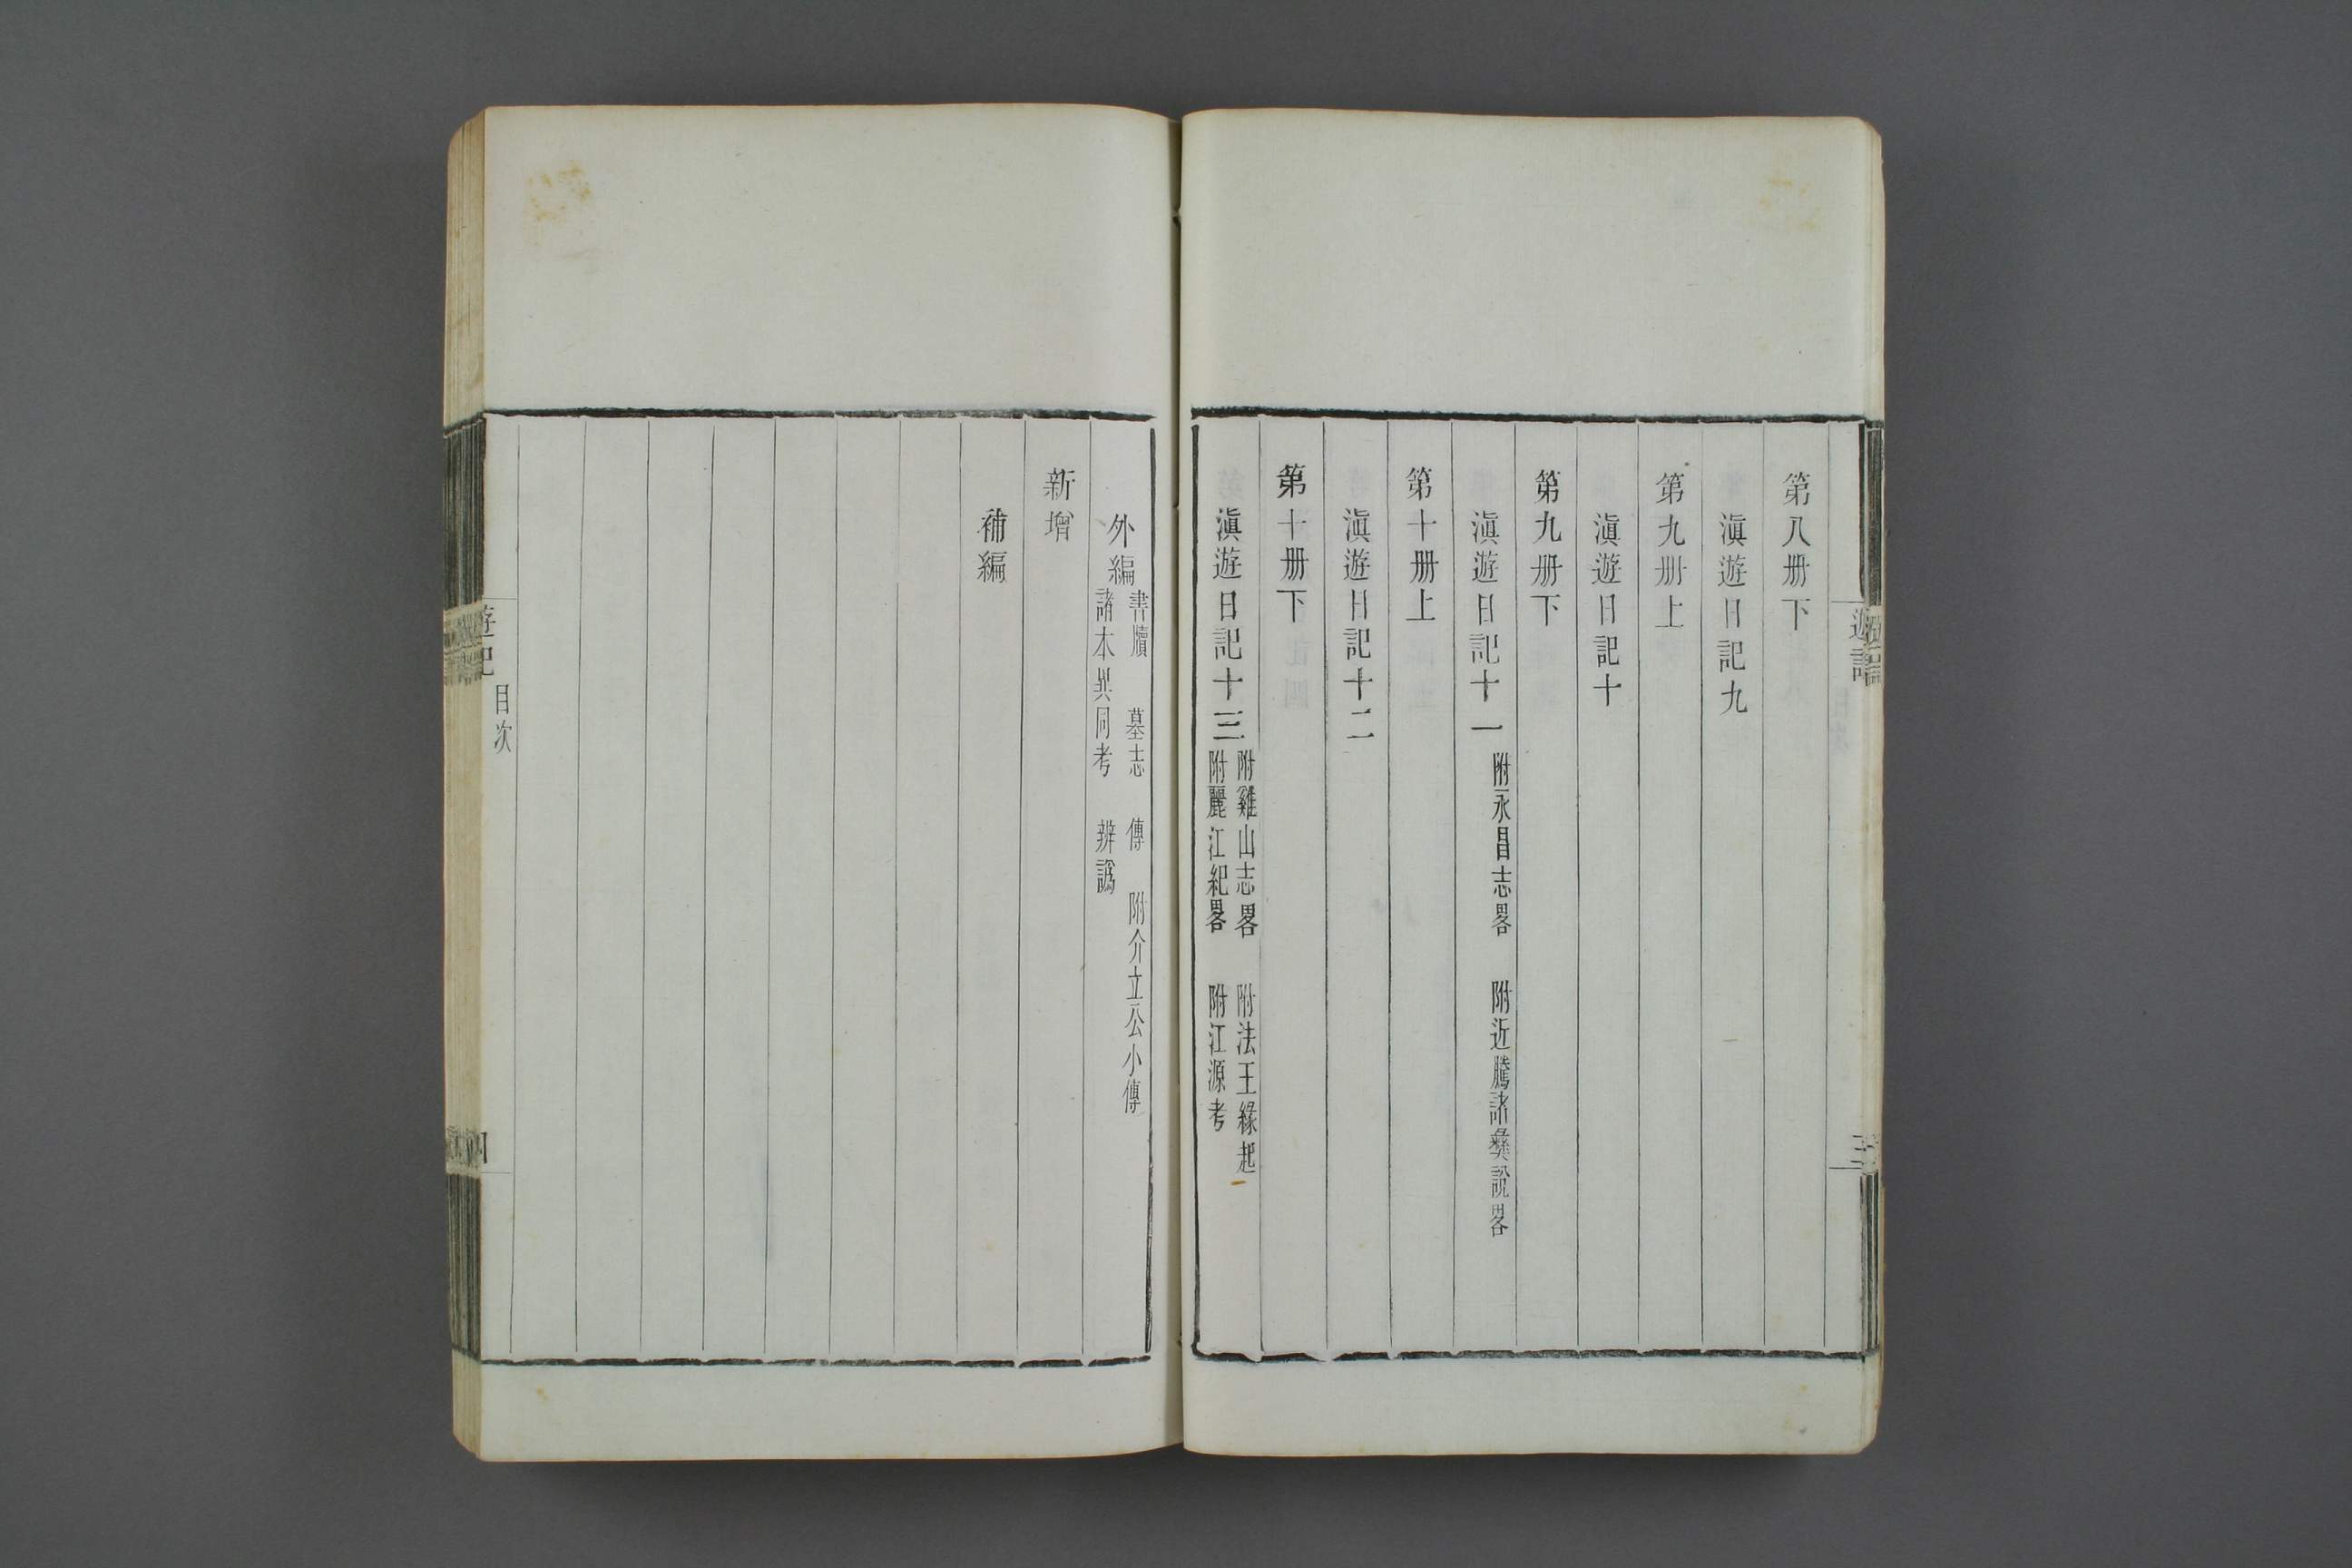 遊記
三
第八册下
滇遊日記九
第九册上
滇遊日記十
第九册下
滇遊日記十一 附永昌志畧 附近騰諸彝說畧
第十册上
滇遊日記十二
第十册下
滇遊日記十三 附雞山志畧 附法王緣起
附麗江紀畧 附江源考
外編 書牘 墓志 傳 附介立公小傳
諸本異同考 辨譌
新增
補編
遊記 目次
四